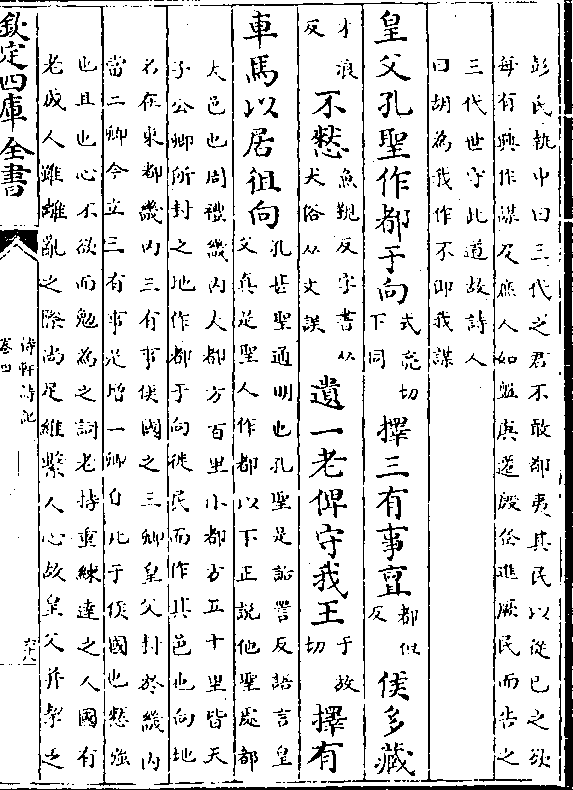 彭氏執中曰三代之君不敢鄙夷其民以從已之欲
每有興作謀及庶人如盤庚遷殷俗進厥民而告之
三代世守此道故詩人
曰胡為我作不即我謀
皇父孔聖作都于向式亮切下同擇三有事亶都但反侯多藏
才浪反不憗魚覲反字書从犬俗从文誤遺一老俾守我王于故切擇有
車馬以居徂向孔甚聖通明也孔聖是詒詈反語言皇
父真是聖人作都以下正說他聖處都
大邑也周禮畿内大都方百里小都方五十里皆天
子公卿所封之地作都于向徙民而作其邑也向地
名在東都畿内三有事侯國之三卿皇父封於畿内
當二卿今立三有事是增一卿自比于侯國也憗强
也且也心不欲而勉為之詞老持重練達之人國有
老成人雖離亂之際尚足維繫人心故皇父并挈之
欽定四庫全書
待軒詩記
卷四
六十八